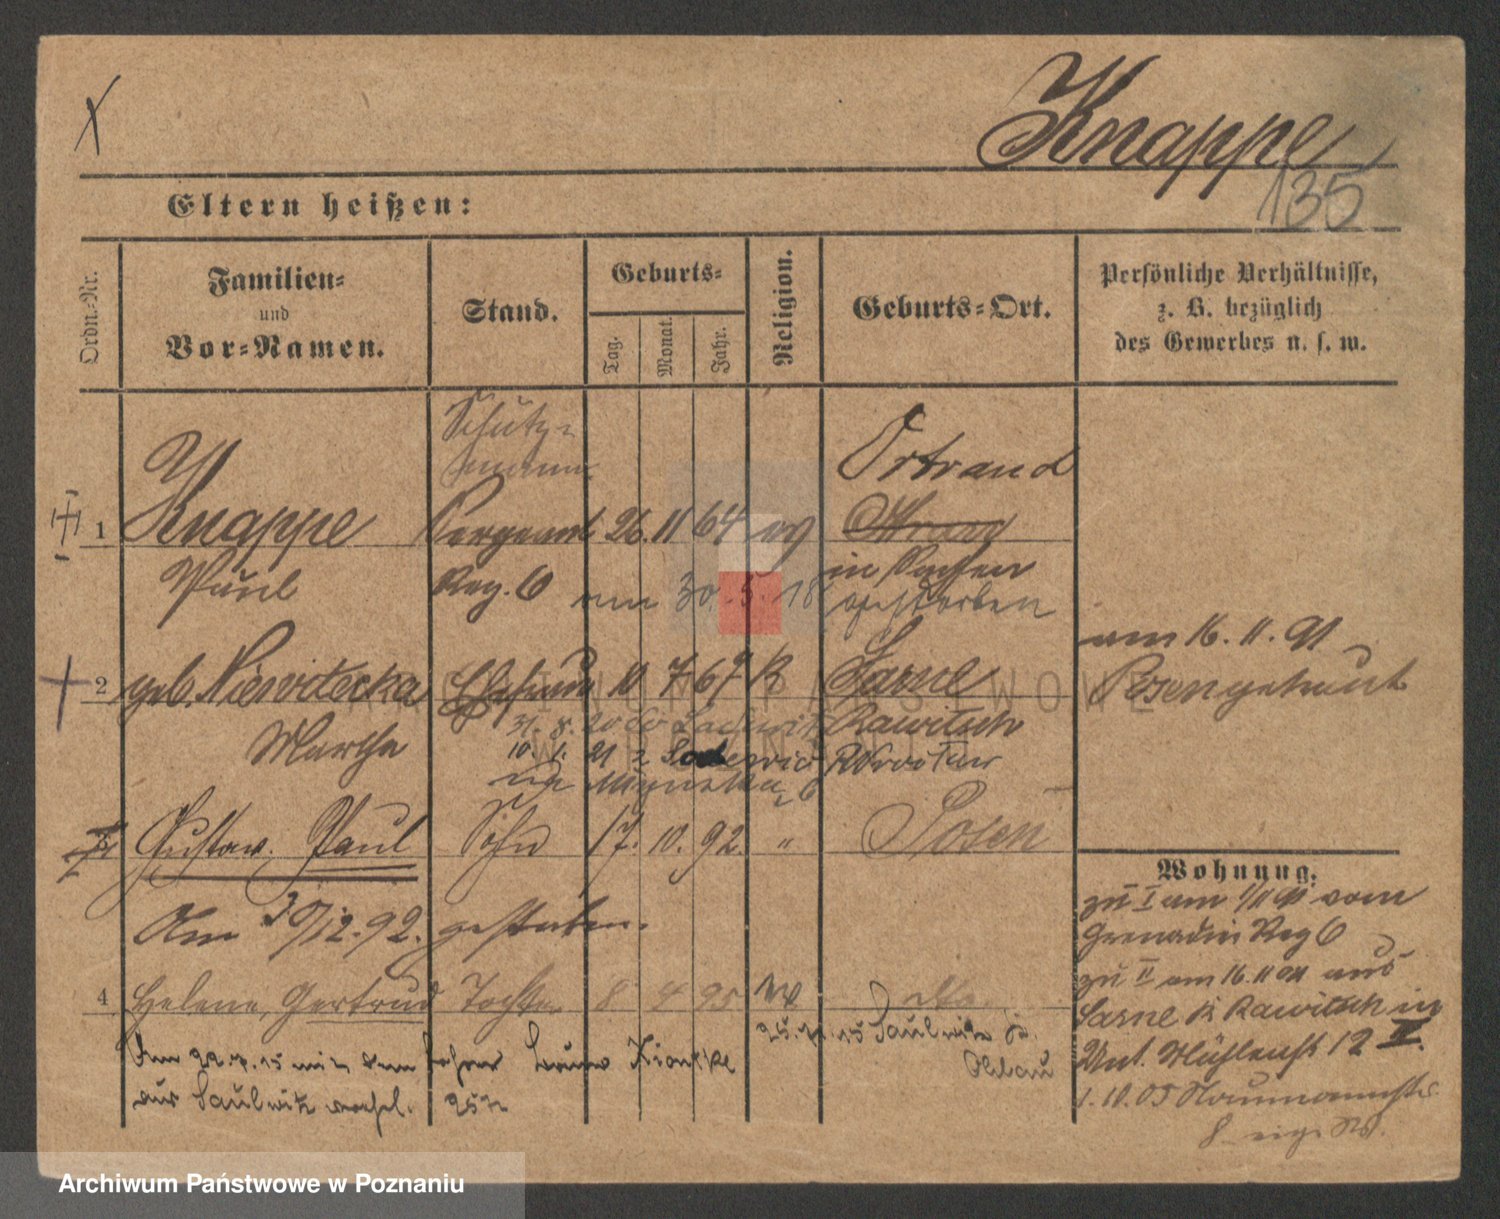 Knappe
135
Eltern heißen:
Ordn.-Nr.
Familien-
und
Vor-Namen.
Stand.
Geburts-
Tag.
Monat.
Jahr.
Religion.
Geburts-Ort.
Persönliche Verhältnisse,
z. B. bezüglich
des Gewerbes u. s. w.
Schutz-
mann
Ortrand
1 Knappe Sergeant 26. 11 64 evg
Paul Reg. 6 in Sachsen
am 30. 5. 18 gestorben
am 16. 11. 91
Posen getraut
2 geb. Niewitecka Ehefrau 10 7 67 K Sarne
Martha Rawitsch
31. 8. 20
10. 1. 21
Gustav, Paul Sohn 17. 10. 92. " Posen
Am 30/12. 92. gestorben.
4 Helene, Gertrud Tochter 8 4 95 dto.
Am 22.7.15 mit dem Lehrer Bruno
25.7.15 Saulwitz
Ohlau
aus Saulwitz verehel.
Wohnung.
zu I am 1/11 91 vom
Grenadier Reg 6
zu II am 16. 11 91 aus
Sarne K Rawitsch in
Unt. Mühlenstr 12 II.
1. 10. 05 Naumannstr.
8
ARCHIWUM PAŃSTWOWE
W POZNANIU
Archiwum Państwowe w Poznaniu